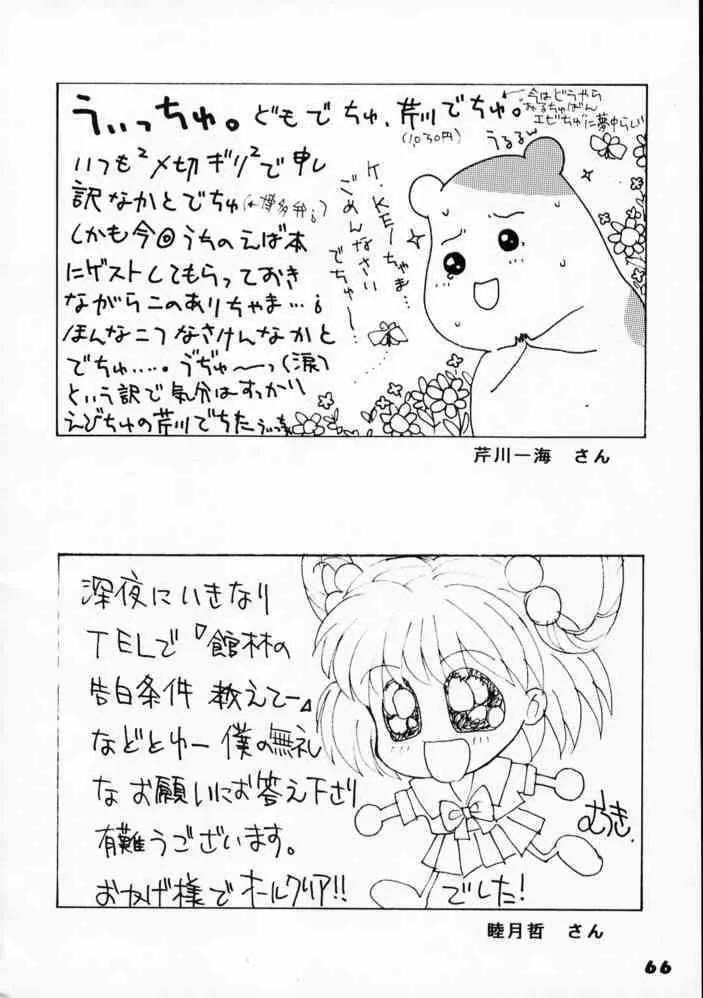 うぃっちゅ。どもでちゅ、芹川でちゅ。
(1030円)
←今はどうやら
ちゅばん
エビちゅに夢中らしい
うるるん
いつも²〆切ギリ²で申し
訳なかとでちゅ(←博多弁。)
しかも今回うちのえば本
にゲストしてもらっておき
ながらこのありちゃま…。
ほんなこつなさけんなかと
でちゅ….。うぢゅ〜っ(涙)
という訳で気分はすっかり
えびちゅの芹川でちた
K.KEIちゃま…
ごめんなさい
でちゅ〜…
芹川一海 さん
深夜にいきなり
TELで『館林の
告白条件 教えてー』
などとゆー僕の無礼
なお願いにお答え下さり
有難うございます。
おかげ様でオールクリア!!
でした!
むつき.
睦月哲 さん
66